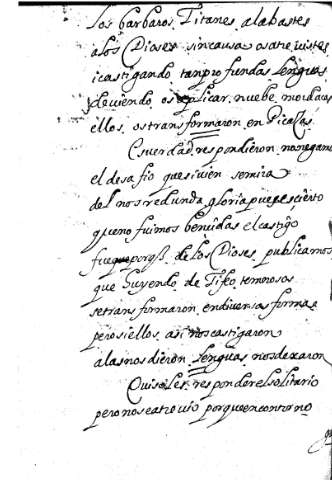 los barbaros Titanes alabastes
a los Dioses sin causa os atreuistes
i castigando tan profundas lenguas
deuiendo os aplicar nuebe mordaças
ellos os transformaron en Picaças
Es uerdad respondieron no negamos
el desafio que si uien se mira
del nos redunda gloria pues es cierto
que no fuimos bencidas el castigo
fue porq los Dioses publicamos
que huyendo de Tifeo temerosos
se transformaron en diuersas formas
pero si ellos asi nos castigaron
alas nos dieron lenguas nos dexaron
Quisoles responder el solitario
pero no se atreuio porque en contorno